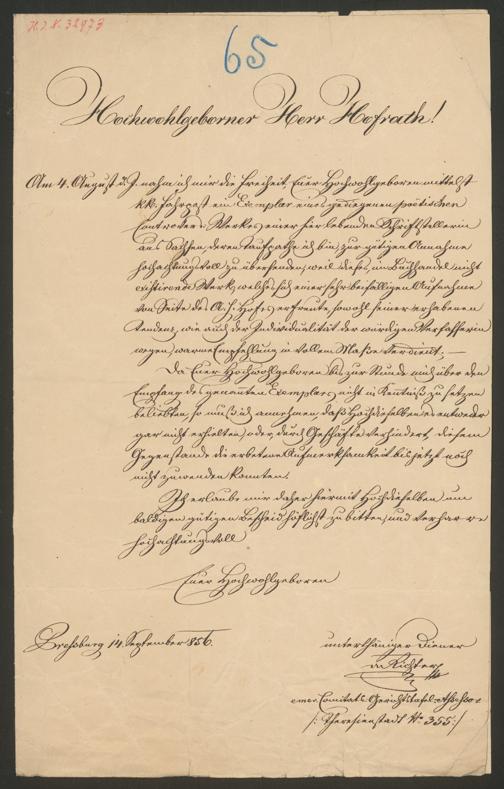 H.I.N. 32973
65
Hochwohlgeborner Herr Hofrath!
Am 4. August d. J. nahm ich mir die Freiheit Euer Hochwohlgeboren mittelst
kk. Fahrpost ein Exemplar eines gediegenen poetischen
Controvers-Werkes einer hier lebenden Schriftstellerin
aus Sachsen, deren Taufpathe ich bin, zur gütigen Annahme
hochachtungsvoll zu übersenden, weil dieses, im Buchhandel nicht
existirende Werk, welches sich einer sehr beifälligen Aufnahme
von Seite des A. h. Hofes erfreute, sowohl seiner erhabenen
Tendenz, wie auch der Individualität der würdigen Verfasserin
wegen, warme Empfehlung in vollem Maße verdient. —
Da Euer Hochwohlgeboren bis zur Stunde mich über den
Empfang des genannten Exemplares nicht in Kenntniß zu setzen
beliebten, so muß ich annehmen, daß Hochdieselben es entweder
gar nicht erhielten, oder, durch Geschäfte verhindert, diesem
Gegenstande die erbetene Aufmerksamkeit bis jetzt noch
nicht zuwenden konnten.
Ich erlaube mir daher hiermit Hochdieselben um
baldigen gütigen Bescheid höflichst zu bitten, und verharre
hochachtungsvoll
Euer Hochwohlgeboren
Pressburg 14. September 856.
unterthäniger Diener
Richter
emer. Comitats-Gerichtstafel-Assessor
/: Theresienstadt No 355 :/